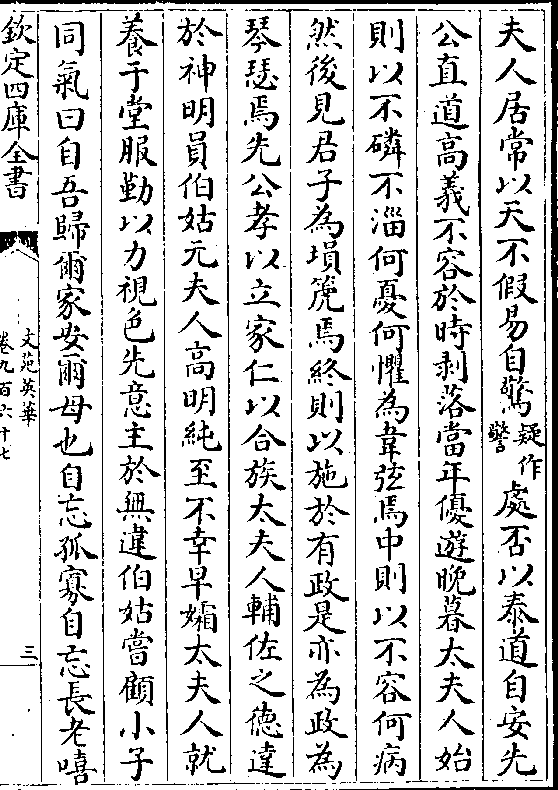 夫人居常以天不假易自驚疑作警處否以泰道自安先
公直道高義不容於時剥落當年優遊晚暮太夫人始
則以不磷不淄何憂何懼為韋弦焉中則以不容何病
然後見君子為塤篪焉終則以施於有政是亦為政為
琴瑟焉先公孝以立家仁以合族太夫人輔佐之德達
於神明員伯姑元夫人高明純至不幸早孀太夫人就
養于堂服勤以力視色先意主於無違伯姑嘗顧小子
同氣曰自吾歸爾家安爾母也自忘孤寡自忘長老嘻
欽定四庫全書
文苑英華
卷九百六十七
三